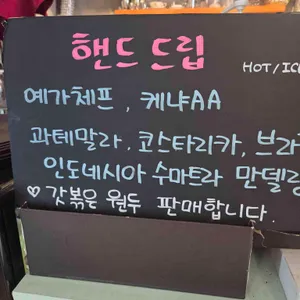 핸드 드립
HOT / IC
예가체프, 케냐AA
과테말라, 코스타리카, 브라
인도네시아 수마트라 만델링
♡ 갓볶은 원두 판매합니다.